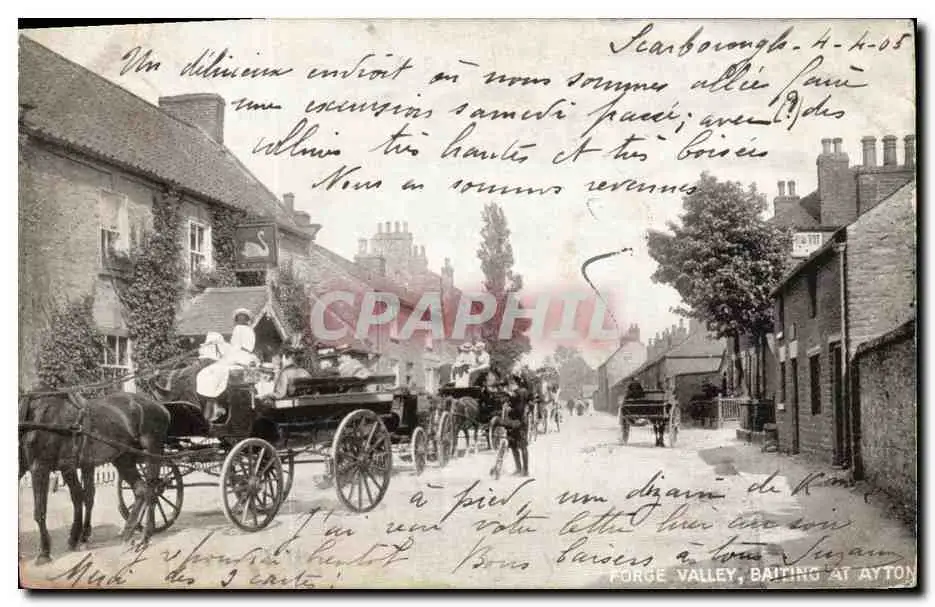 Scarborough - 4-4-05
Un délicieux endroit où nous sommes allées faire
une excursion samedi passé; avec (?) des
collines très hautes et très boisées
Nous en sommes revenues
CPARPHIL
à pied, une dizaine de Km
J'ai reçu votre lettre hier au soir
J'y répondrai bientôt. Bons baisers à tous Suzanne
Merci des 3 cartes!
FORGE VALLEY, BAITING AT AYTON